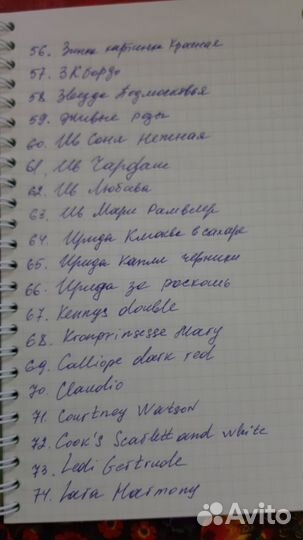 56. Зимняя картинка Красная
57. ЗК Бордо
58 Звезда Подмосковья
59. Дивные розы
60. Ив Соня Нежная
61. Ив Чардаш
62. Ив Любава
63. Ив Мари Рамблер
64. Ирида Клюква в сахаре
65. Ирида Капли черники
66. Ирида за роскошь
67. Kennys double
68. Kronprinsesse Mary
69. Calliope dark red
70. Claudio
71. Courtney Watson
72. Cook's Scarlett and white
73. Ledi Gertrude
74. Lara Harmony
Avito